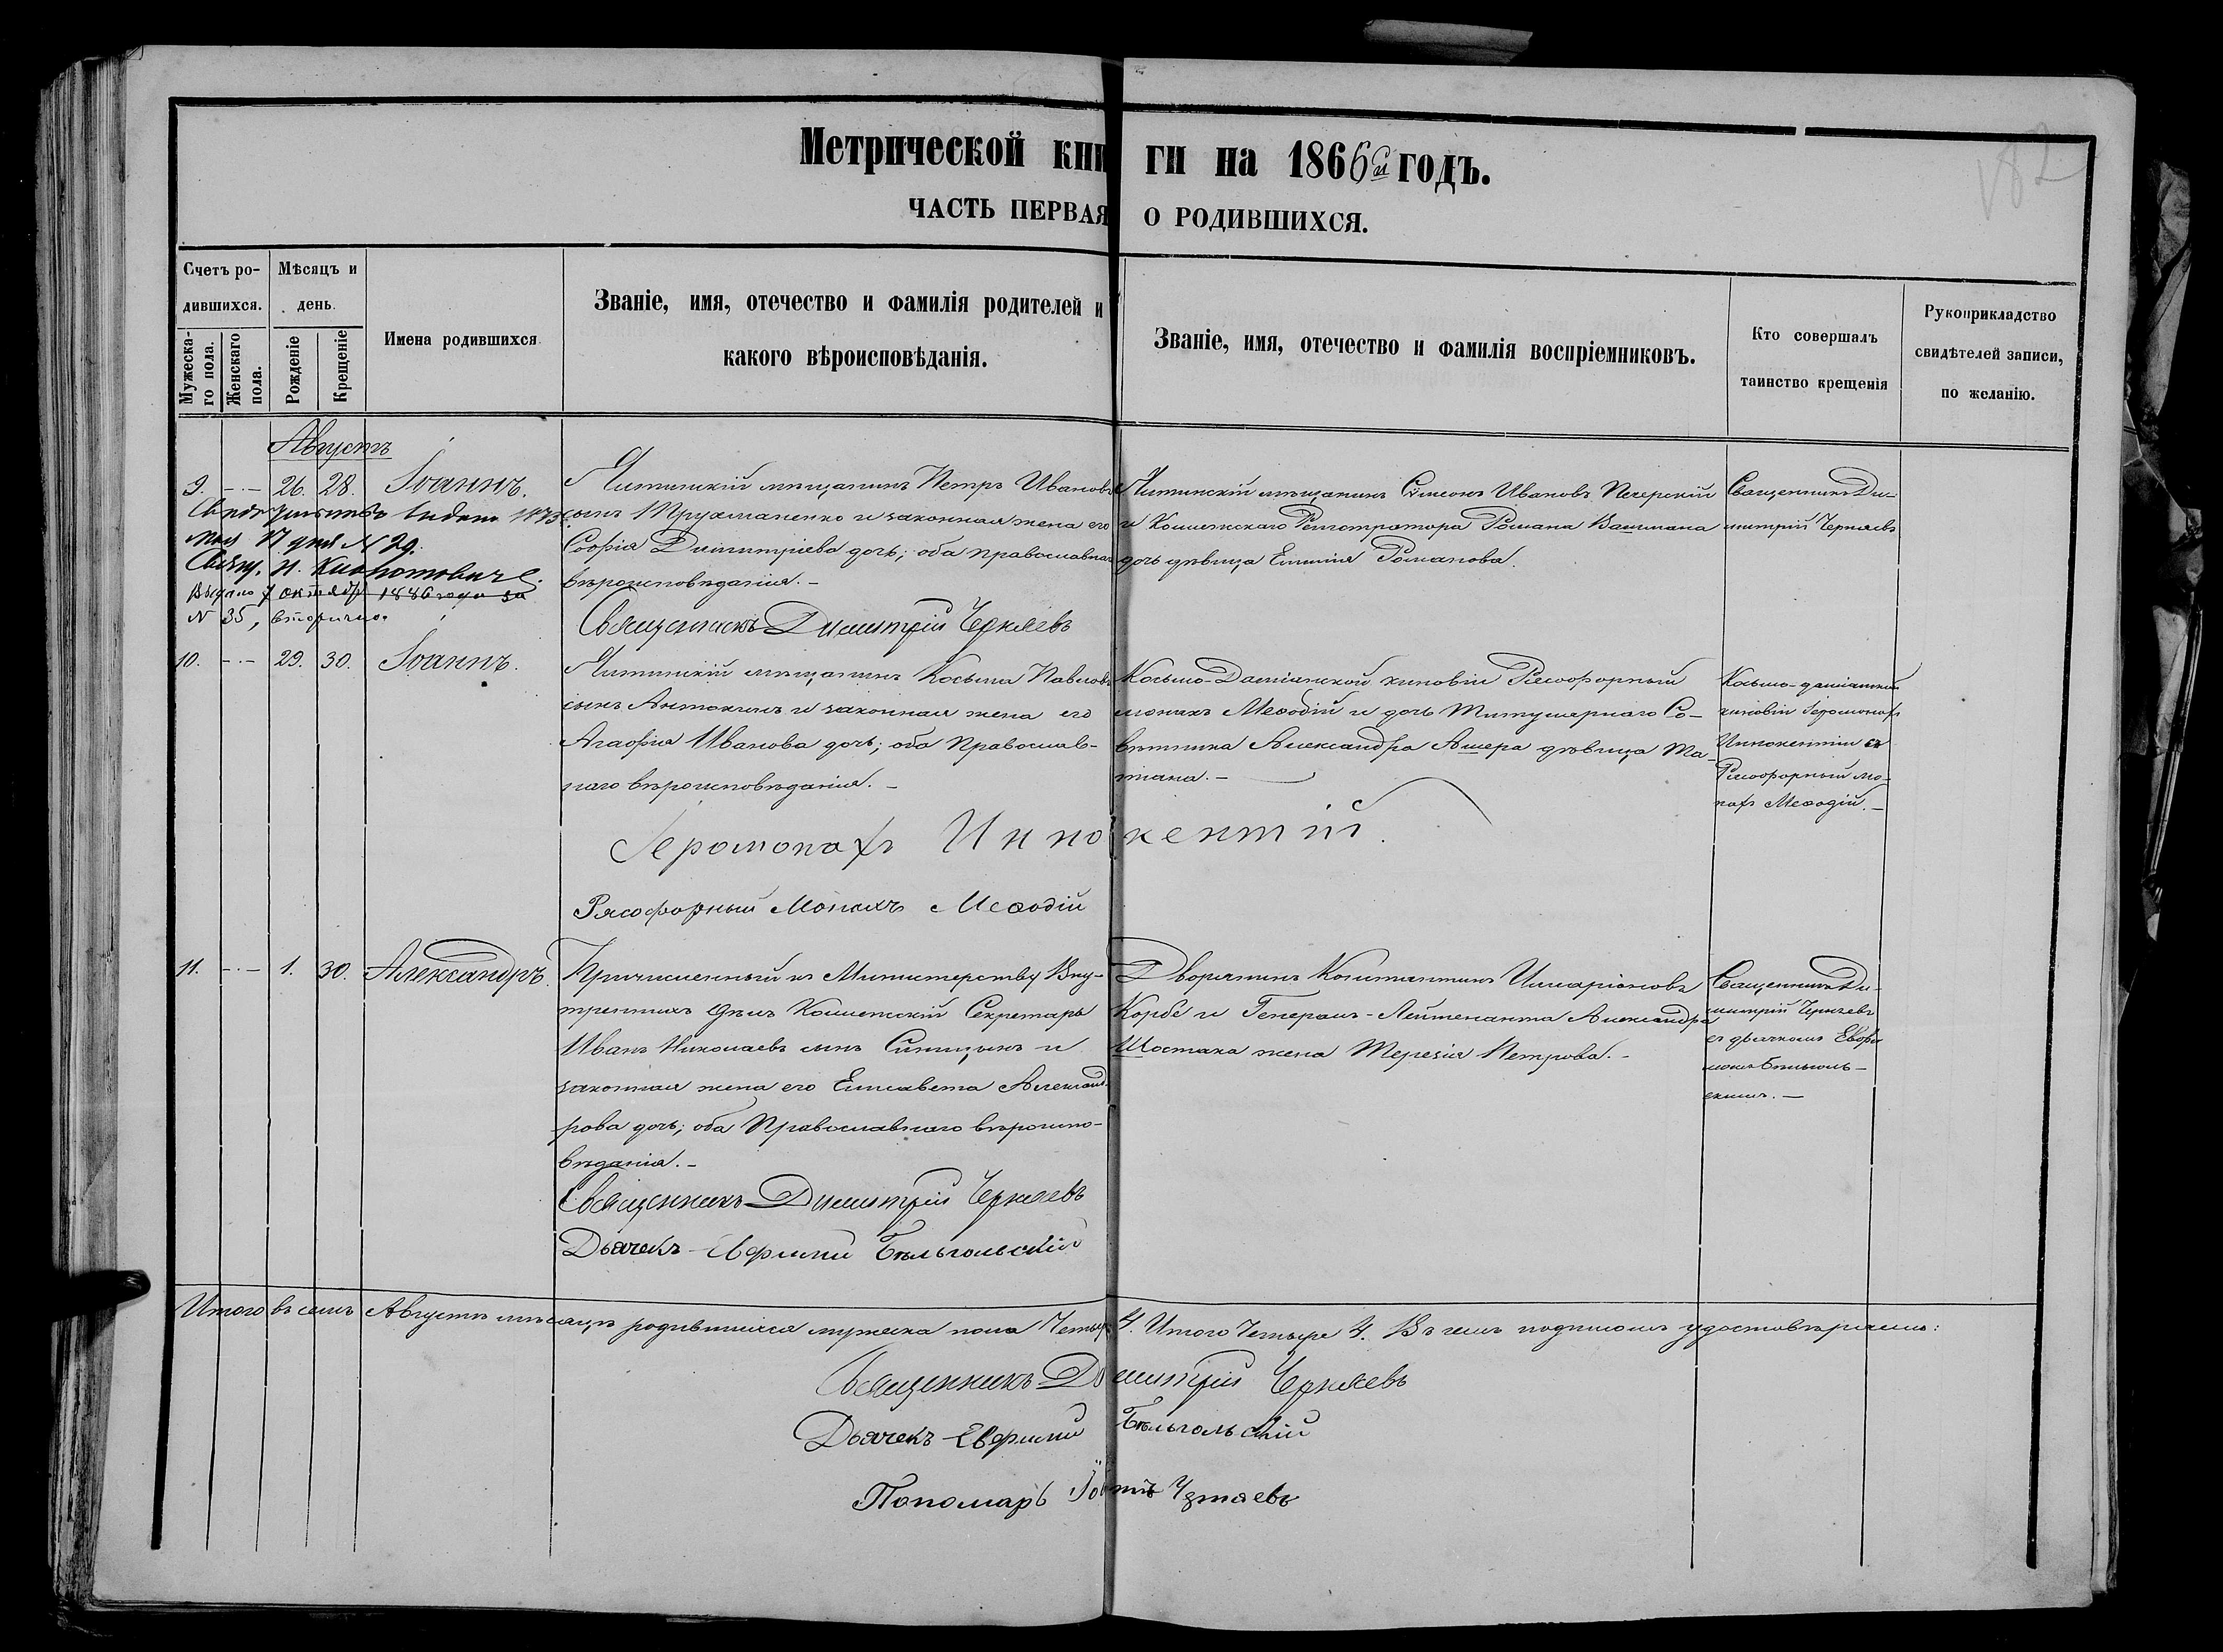 182
Метрической книги на 1866й годъ.
ЧАСТЬ ПЕРВАЯ О РОДИВШИХСЯ.
Счетъ ро-
дившихся.
Мужеска-
го пола.
Женскаго
пола.
Мѣсяцъ и
день.
Рожденіе
Крещеніе
Имена родившихся.
Званіе, имя, отечество и фамилія родителей и
какого вѣроисповѣданія.
Званіе, имя, отечество и фамилія воспріемниковъ.
Кто совершалъ
таинство крещенія
Рукоприкладство
свидѣтелей записи,
по желанію.
Августъ
9. — 26. 28. Іоаннъ.
Свидѣтельство выдано 1873
мая 17 дня N 29.
Свящ. Н.
Выдано 7 октября 1886 года за
N 35, вторично.
Читинскій мѣщанинъ Петръ Ивановъ
сынъ Трухманенко и законная жена его
Софія Димитріева дочь; оба православнаго
вѣроисповѣданія. –
Священникъ Димитрій Черняевъ
Читинскій мѣщанинъ Симеонъ Ивановъ Печерскій
и Коллежскаго Регистратора Романа Вашмана
дочь дѣвица Емилія Романова.
Священникъ Ди-
митрій Черняевъ
10. — 29. 30. Іоаннъ.
Читинскій мѣщанинъ Косьма Павловъ
сынъ Антохинъ и законная жена его
Агафія Иванова дочь; оба Православ-
наго вѣроисповѣданія. –
Косьмо-Даміанской киновіи Рясофорный
монахъ Меѳодій и дочь Титулярнаго Со-
вѣтника Александра Ашера дѣвица Та-
тіана. –
Косьмо-даміанской
киновіи Іеромонахъ
Иннокентій съ
Рясофорный мо-
нахъ Меѳодій. –
Іеромонахъ Инокентій.
Рясофорный Монахъ Меѳодій
11. — 1. 30. Александръ.
Причисленный къ Министерству Вну-
треннихъ дѣлъ Коллежскій Секретарь
Иванъ Николаевъ сынъ Синицынъ и
законная жена его Елисавета Александ-
рова дочь; оба Православнаго вѣроиспо-
вѣданія. –
Священникъ Димитрій Черняевъ
Дьячекъ Евфимій Бѣльгольскій
Дворянинъ Константинъ Илларіоновъ
Корбе и Генералъ-Лейтенанта Александра
Шостака жена Терезія Петрова. –
Священникъ Ди-
митрій Черняевъ
съ дьячкомъ Евфи
міемъ Бѣльголь-
скимъ. –
Итого въ семъ Августѣ мѣсяцѣ родившихся мужеска пола Четыре 4. Итого Четыре 4. Въ чемъ подписомъ удостовѣряемъ:
Священникъ Димитрій Черняевъ
Дьячекъ Евфимій Бѣльгольскій
Пономарь Черняевъ